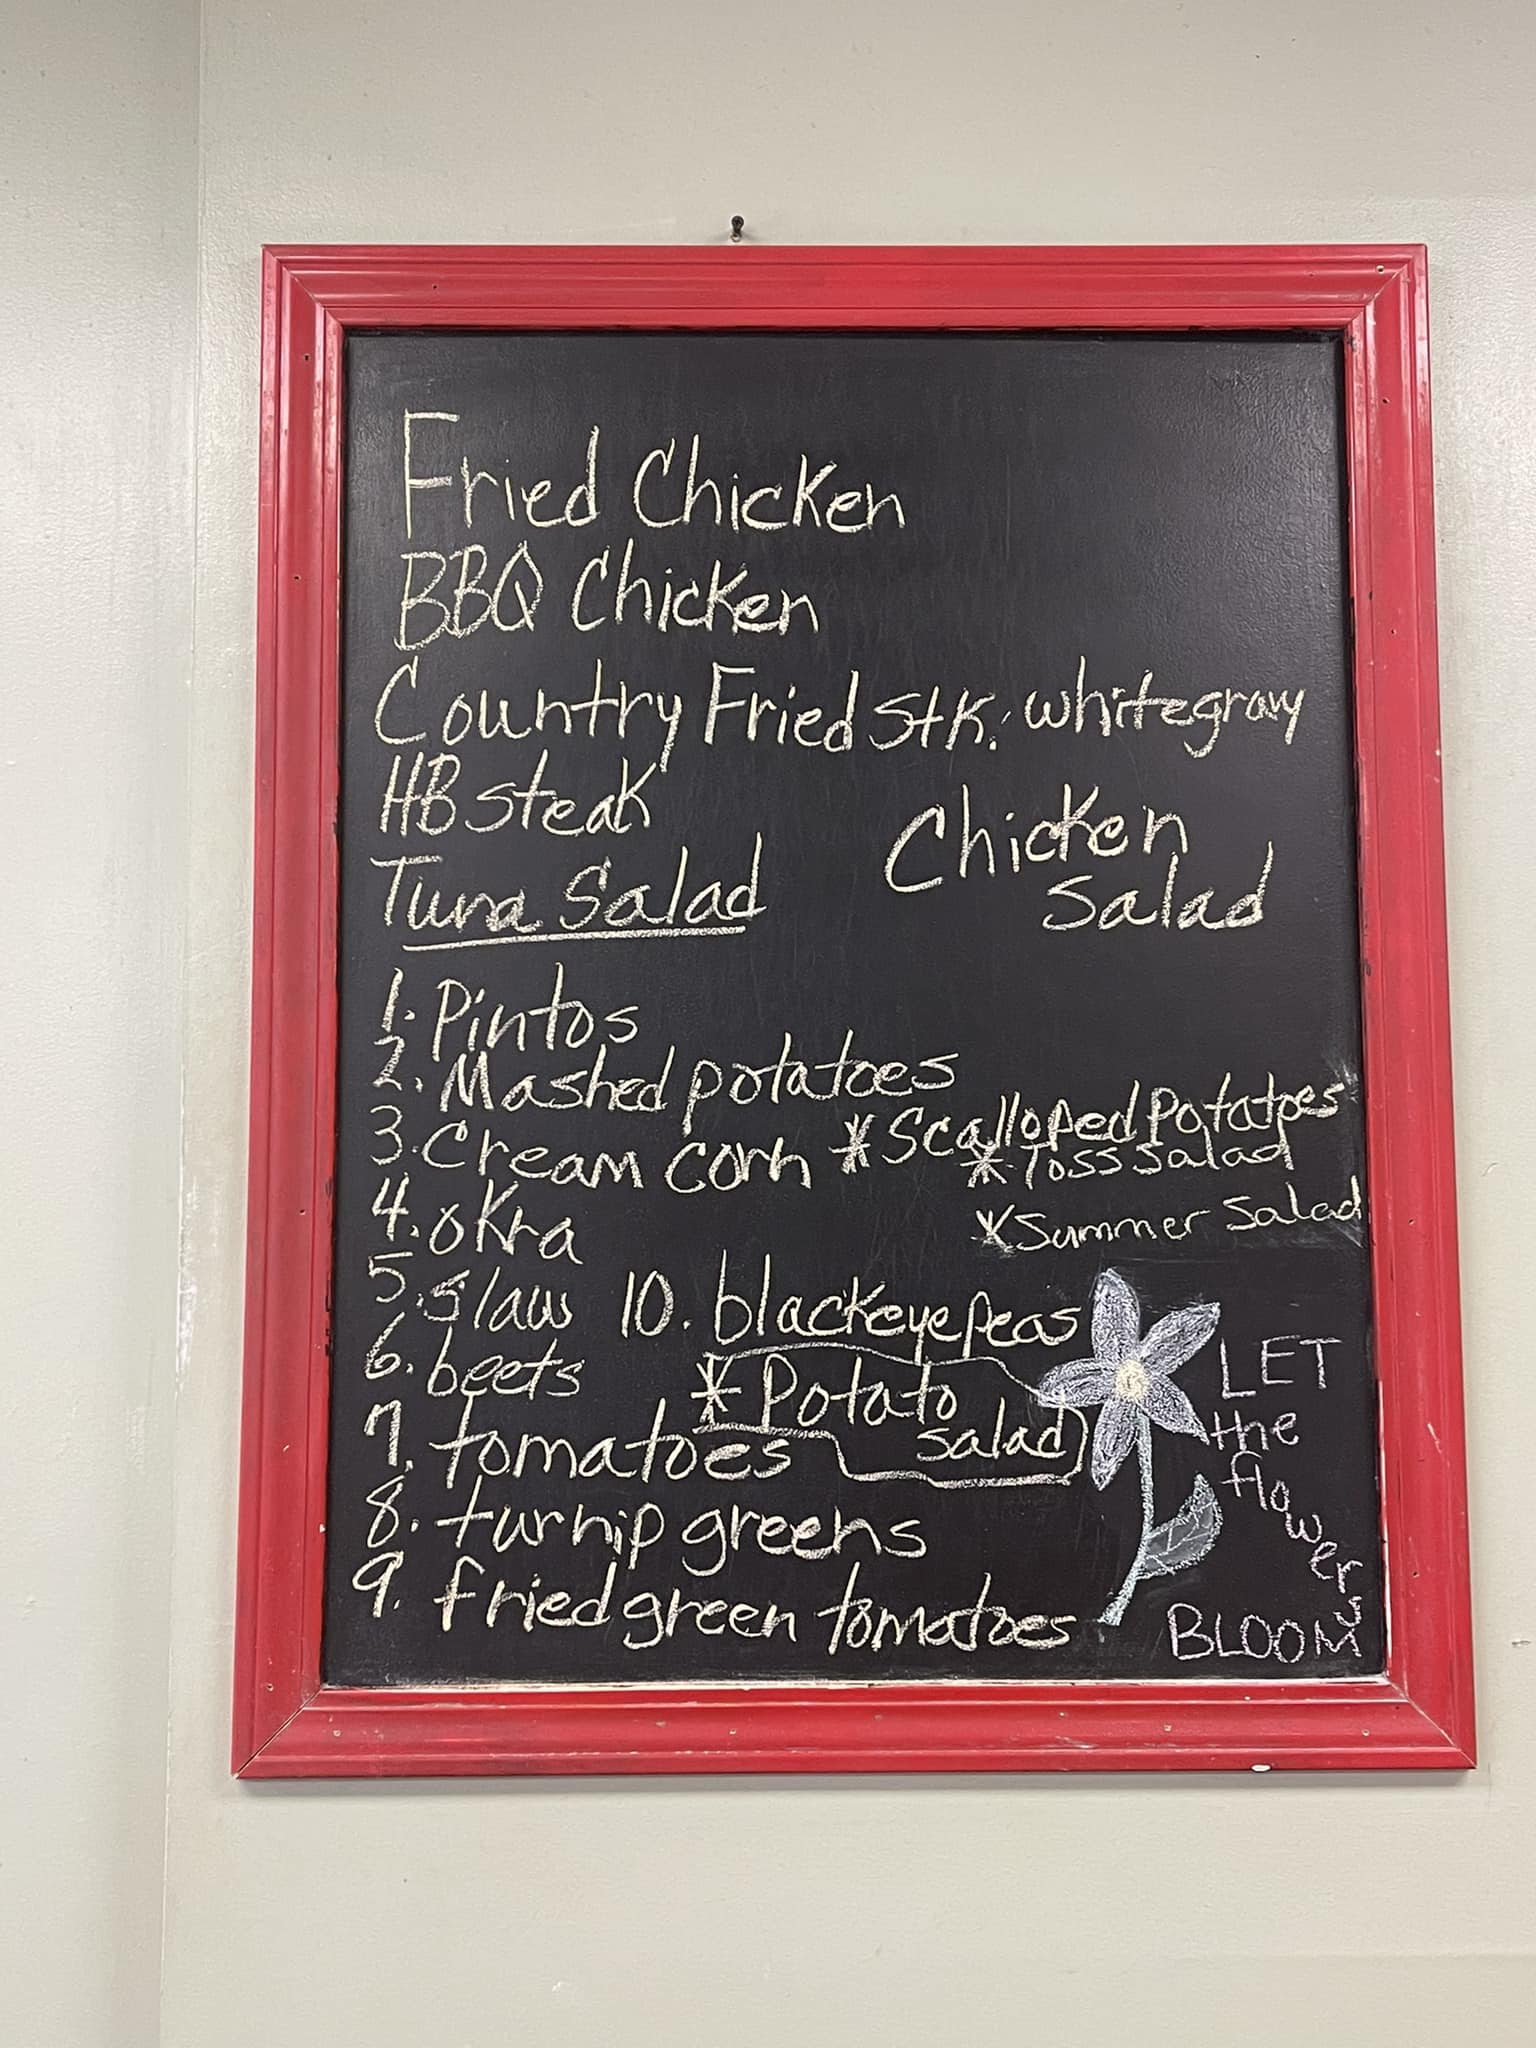 Fried Chicken
BBQ Chicken
Country Fried Stk. whitegravy
HB steak
Chicken
Salad
Tuna Salad
1. Pintos
2. Mashed potatoes
3. Cream corn
*Scalloped Potatoes
*Toss salad
*Summer Salad
4. okra
5. slaw
10. blackeye peas
6. beets
*Potato
salad
7. tomatoes
8. turnip greens
9. fried green tomatoes
LET
the
flowers
BLOOM